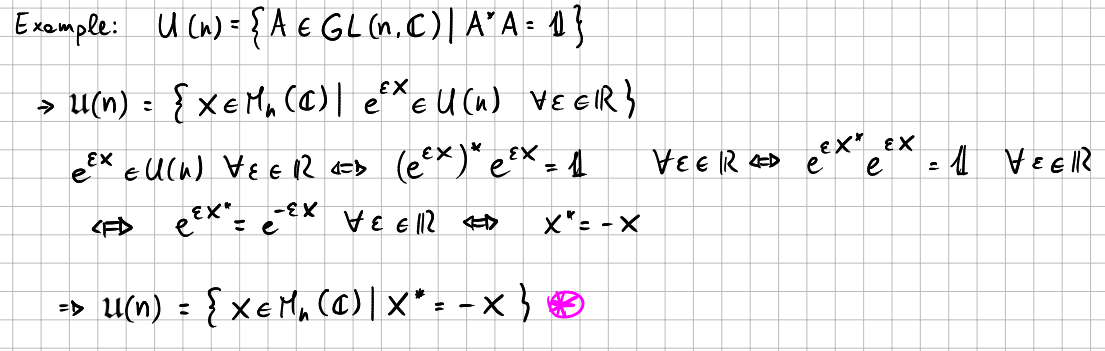 Example: U(n) = { A ∈ GL(n, ℂ) | A*A = 𝟙 }
→ 𝔲(n) = { X ∈ Mₙ(ℂ) | e^{εX} ∈ U(n) ∀ε ∈ ℝ }
e^{εX} ∈ U(n) ∀ε ∈ ℝ ⇔ (e^{εX})* e^{εX} = 𝟙 ∀ε ∈ ℝ ⇔ e^{εX*} e^{εX} = 𝟙 ∀ε ∈ ℝ
⇔ e^{εX*} = e^{-εX} ∀ε ∈ ℝ ⇔ X* = -X
⇒ 𝔲(n) = { X ∈ Mₙ(ℂ) | X* = -X } ⊛